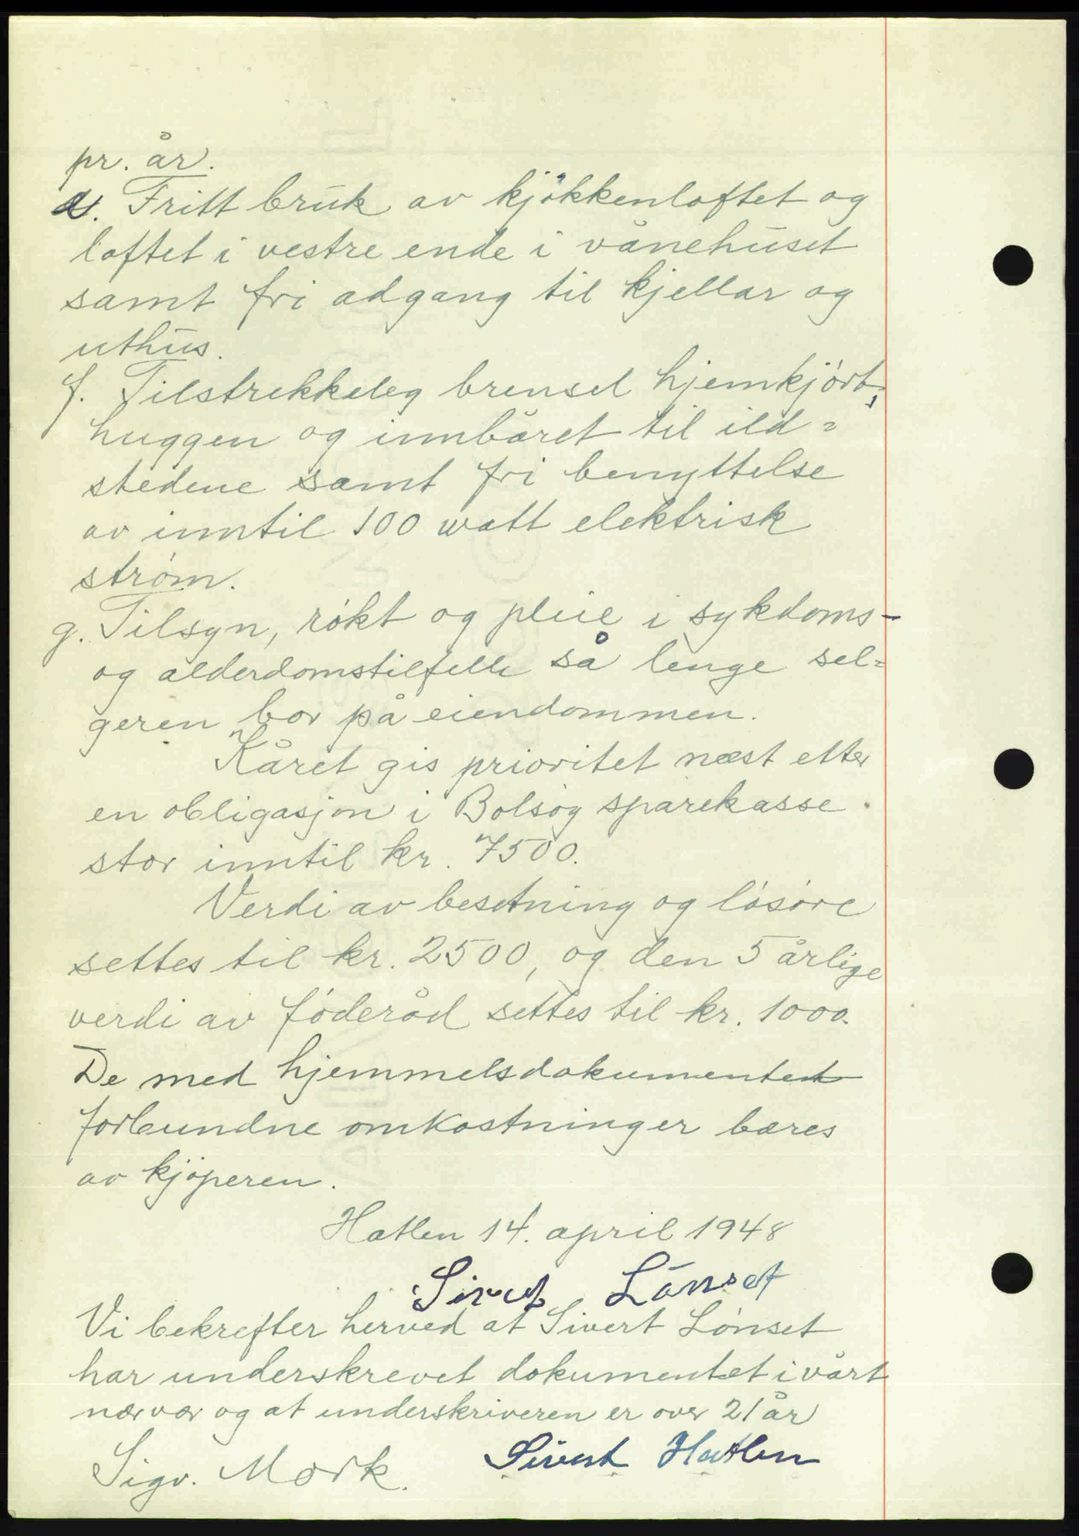 pr. år.
e. Fritt bruk av kjøkkenloftet og
loftet i vestre ende i vånehuset
samt fri adgang til kjellar og
uthus.
f. Tilstrekkeleg brensel hjemkjørt,
huggen og innbåret til ild=
stedene samt fri benyttelse
av inntil 100 watt elektrisk
strøm.
g. Tilsyn, røkt og pleie i sykdoms-
og alderdomstilfelle så lenge sel=
geren bor på eiendommen.
Kåret gis prioritet næst etter
en obligasjon i Bolsøy sparekasse
stor inntil kr. 7500.
Verdi av besetning og løsøre
settes til kr. 2500, og den 5 årlige
verdi av føderåd settes til kr. 1000.
De med hjemmelsdokumentet
forbundne omkostninger bæres
av kjøperen.
Hatlen 14. april 1948
Sivert Lönset
Vi bekrefter herved at Sivert Lønset
har underskrevet dokumentet i vårt
nærvær og at underskriveren er over 21 år
Sigv. Mork. Sivert Hatlen